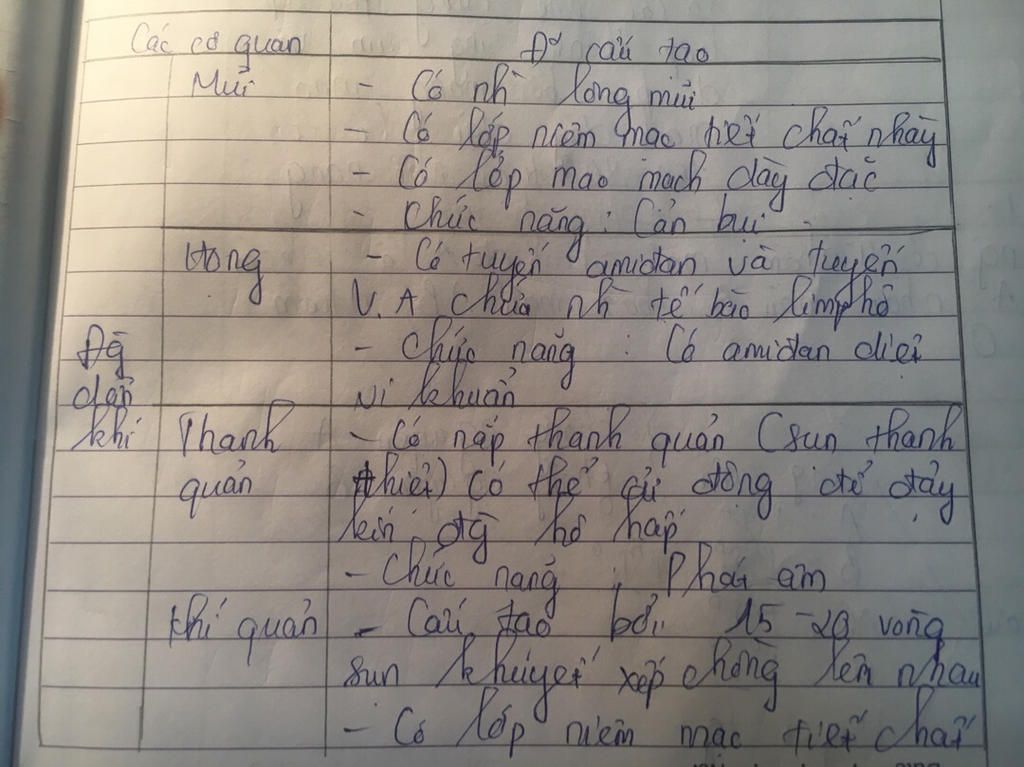 Các cơ quan	Đ² cấu tạo
Mũi	- Có nh` lông mũi
- Có lớp niêm mạc tiết chất nhày
- Có lớp mao mạch dày đặc
- Chức năng : Cản bụi
Họng	- Có tuyến amiđan và tuyến
V.A chứa nh` tế bào limphô
Đg	- Chức năng : Có amiđan diệt
dẫn	vi khuẩn
khí	Thanh	- Có nắp thanh quản (sụn thanh
quản	thiệt) có thể cử động để đậy
kín đg hô hấp
- Chức năng : Phát âm
Khí quản	- Cấu tạo bởi 15-20 vòng
sụn khuyết xếp chồng lên nhau
- Có lớp niêm mạc tiết chất